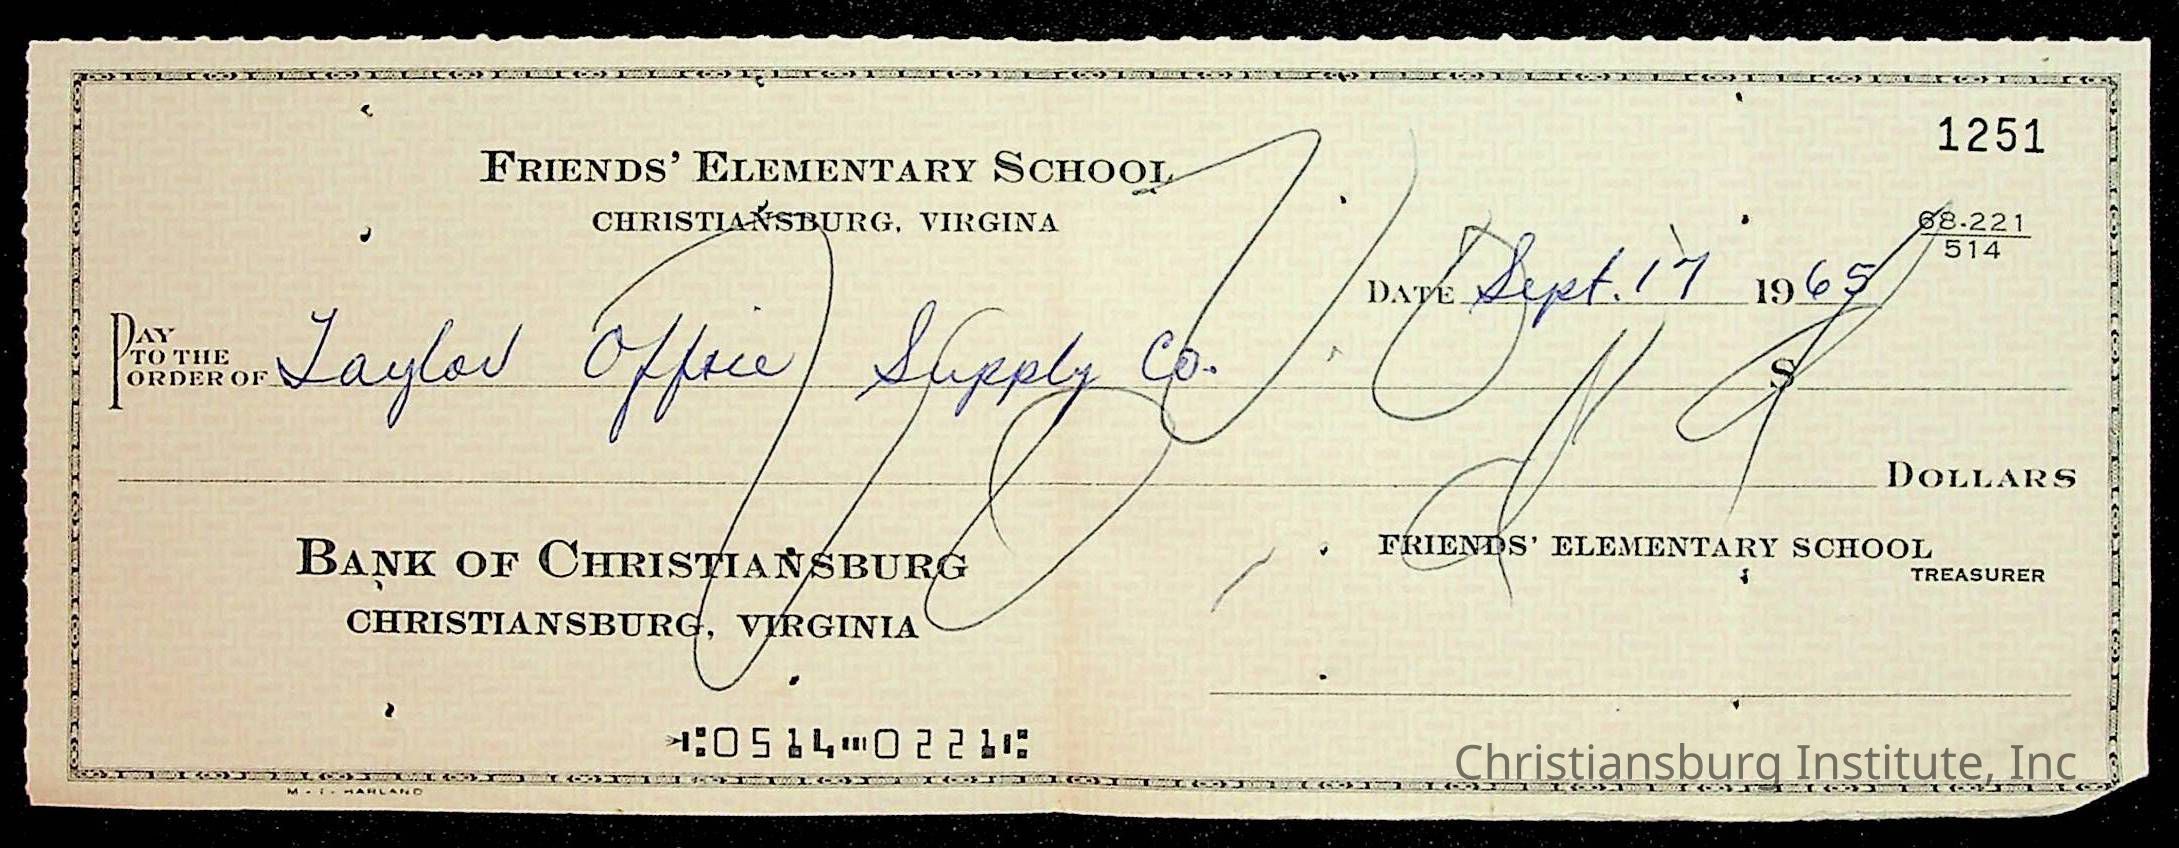 1251
FRIENDS' ELEMENTARY SCHOOL
CHRISTIANSBURG, VIRGINA
68-221
514
DATE Sept. 17 1965
PAY TO THE ORDER OF Taylor Office Supply Co. $
DOLLARS
BANK OF CHRISTIANSBURG
CHRISTIANSBURG, VIRGINIA
FRIENDS' ELEMENTARY SCHOOL
TREASURER
⑆0514⑉0221⑆
Christiansburg Institute, Inc
HARLAND